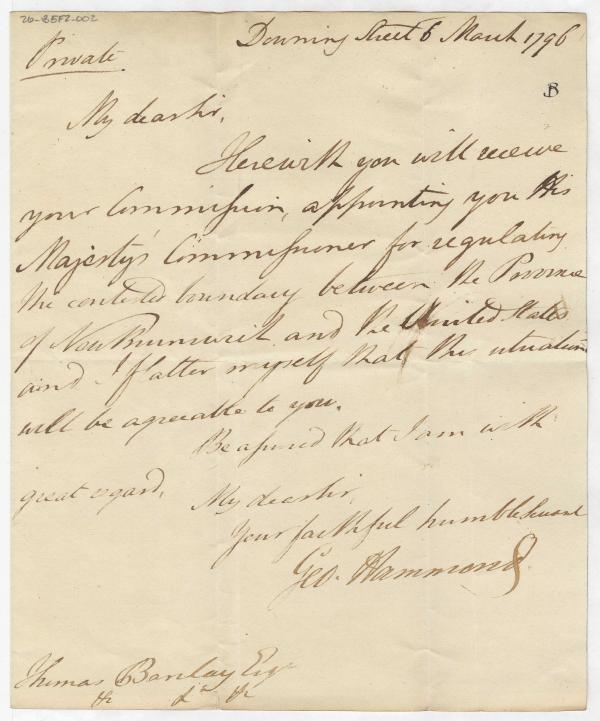 26-85F2-002
Downing Street 6 March 1796
Private
B
My dear Sir,
Herewith you will receive
your Commission, appointing you His
Majesty's Commissioner for regulating
the contested boundary between the Province
of New Brunswick and the United States
and I flatter myself that this situation
will be agreeable to you.
Be assured that I am with
great regard,
My dear Sir,
Your faithful humble Servant
Geo. Hammond
Thomas Barclay Esqr
&c &c &c